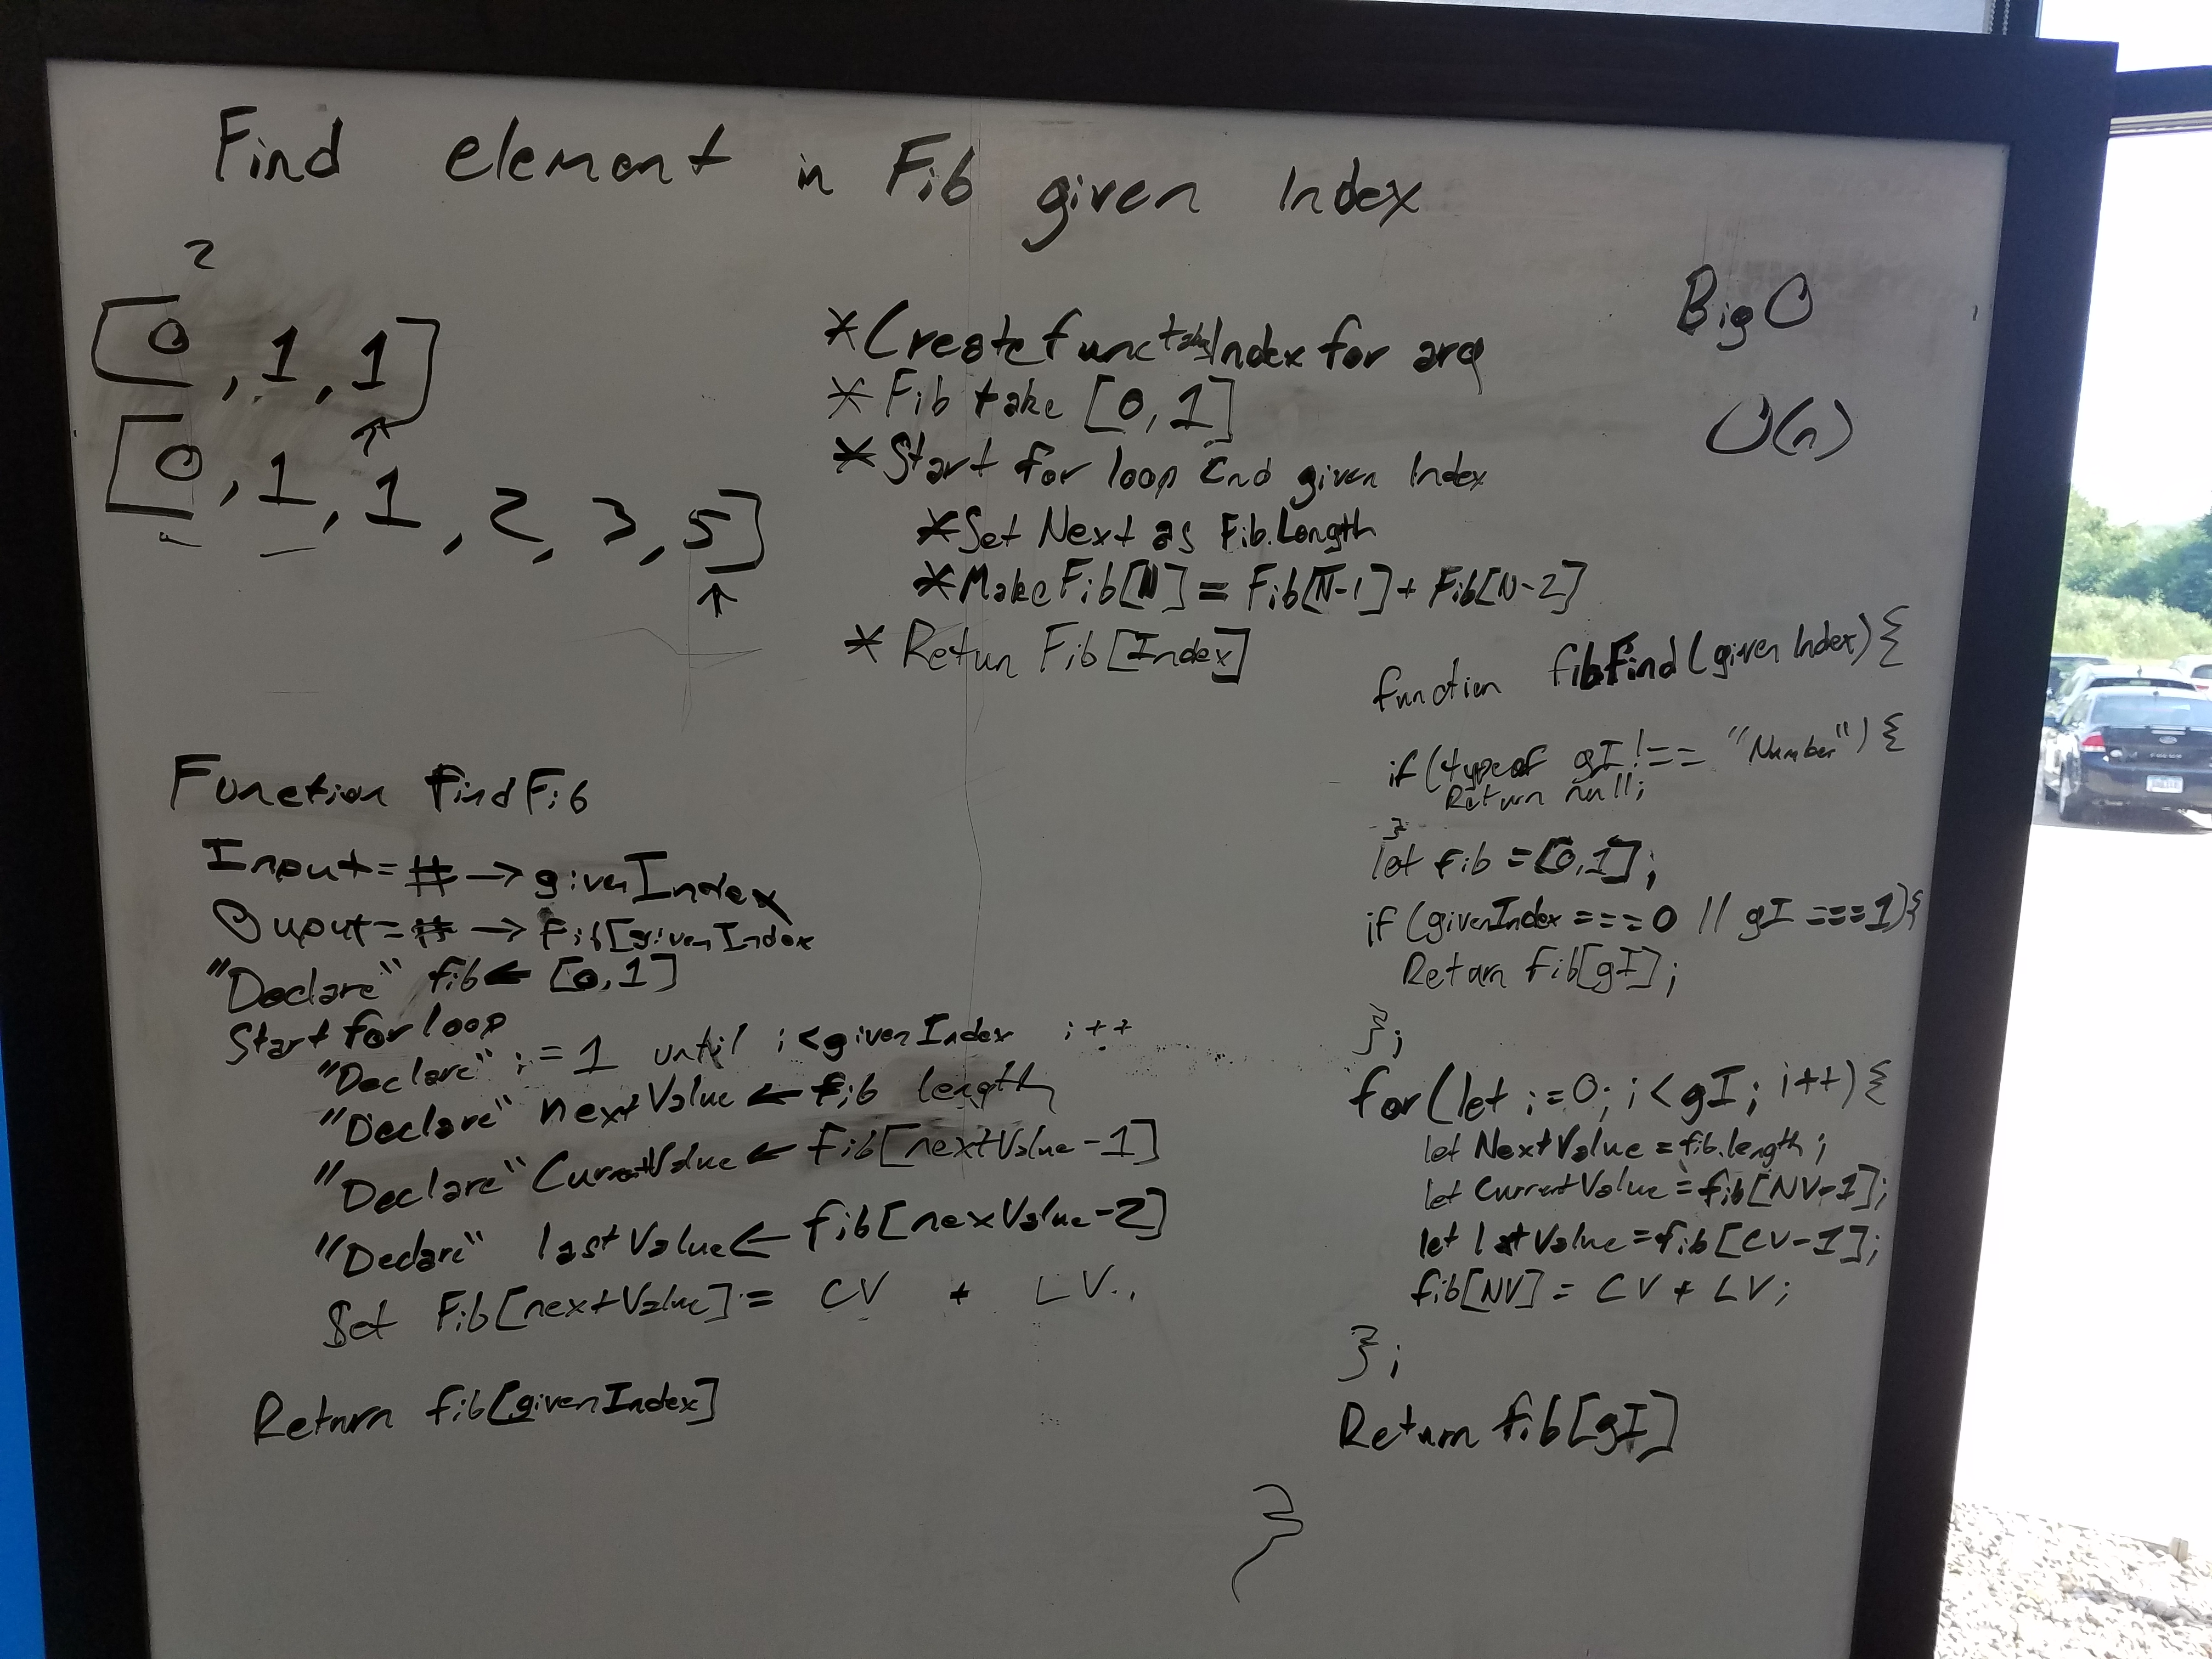 Find element in Fib given Index
2
[0, 1, 1]
↑
[0, 1, 1, 2, 3, 5]
↑
* Create funct Index for arg
* Fib take [0,1]
* Start for loop End given Index
* Set Next as Fib.Length
* Make Fib[N] = Fib[N-1] + Fib[N-2]
* Retun Fib[Index]
Big O
O(n)
Function findFib
Input = # → givenIndex
Ouput = # → Fib[givenIndex
"Declare" fib ← [0,1]
Start for loop
"Declare" i = 1 until i < givenIndex i++
"Declare" nextValue ← fib length
"Declare" CurrentValue ← Fib[nextValue-1]
"Declare" lastValue ← fib[nexValue-2]
Set Fib[nextValue] = CV + LV.
Return fib[givenIndex]
function fibFind(givenIndex){
if (typeof gI !== "Number") {
Return null;
}
let fib = [0,1];
if (givenIndex === 0 || gI === 1){
Return fib[gI];
};
for(let i=0; i < gI; i++) {
let NextValue = fib.length;
let CurrentValue = fib[NV-1];
let lastValue = fib[CV-1];
fib[NV] = CV + LV;
};
Return fib[gI]
}